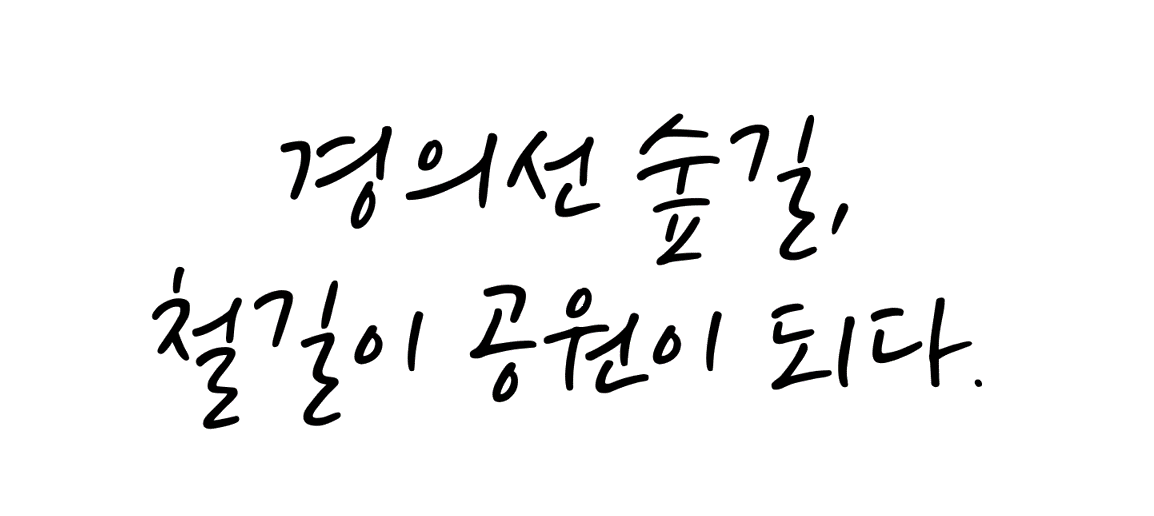 경의선 숲길,
철길이 공원이 되다.